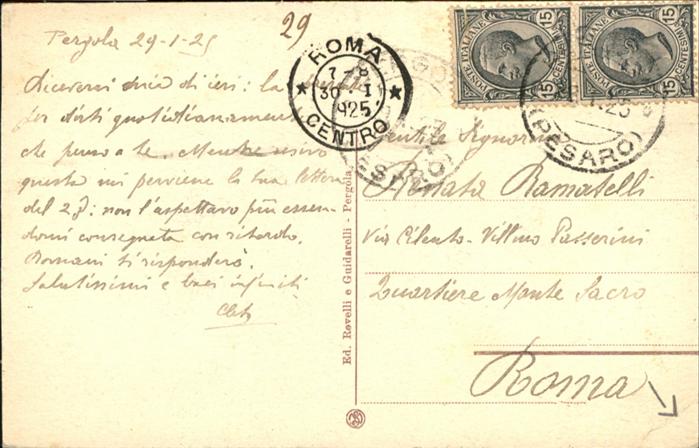 Pergola 29-1-25
29
Riceverai mia di ieri: la
per dirti quotidianamente
che penso a te. Mentre
questa mi perviene la tua lettera
del 27: non l'aspettavo più essen-
domi consegnata con ritardo.
Domani ti risponderò.
Salutissimi e baci infiniti
ROMA
7-8
30 I
1925
CENTRO
POSTE ITALIANE
15 CENTESIMI 15
POSTE ITALIANE
15 CENTESIMI 15
(PESARO)
(PESARO)
Gentile Signorina
Renata Ramatelli
Via Cilento-Villino Passerini
Quartiere Monte Sacro
Roma
Ed. Rovelli e Guidarelli - Pergola